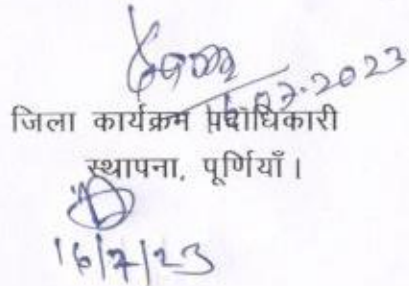 16.07.2023
जिला कार्यक्रम पदाधिकारी
स्थापना, पूर्णियाँ।
16/7/23